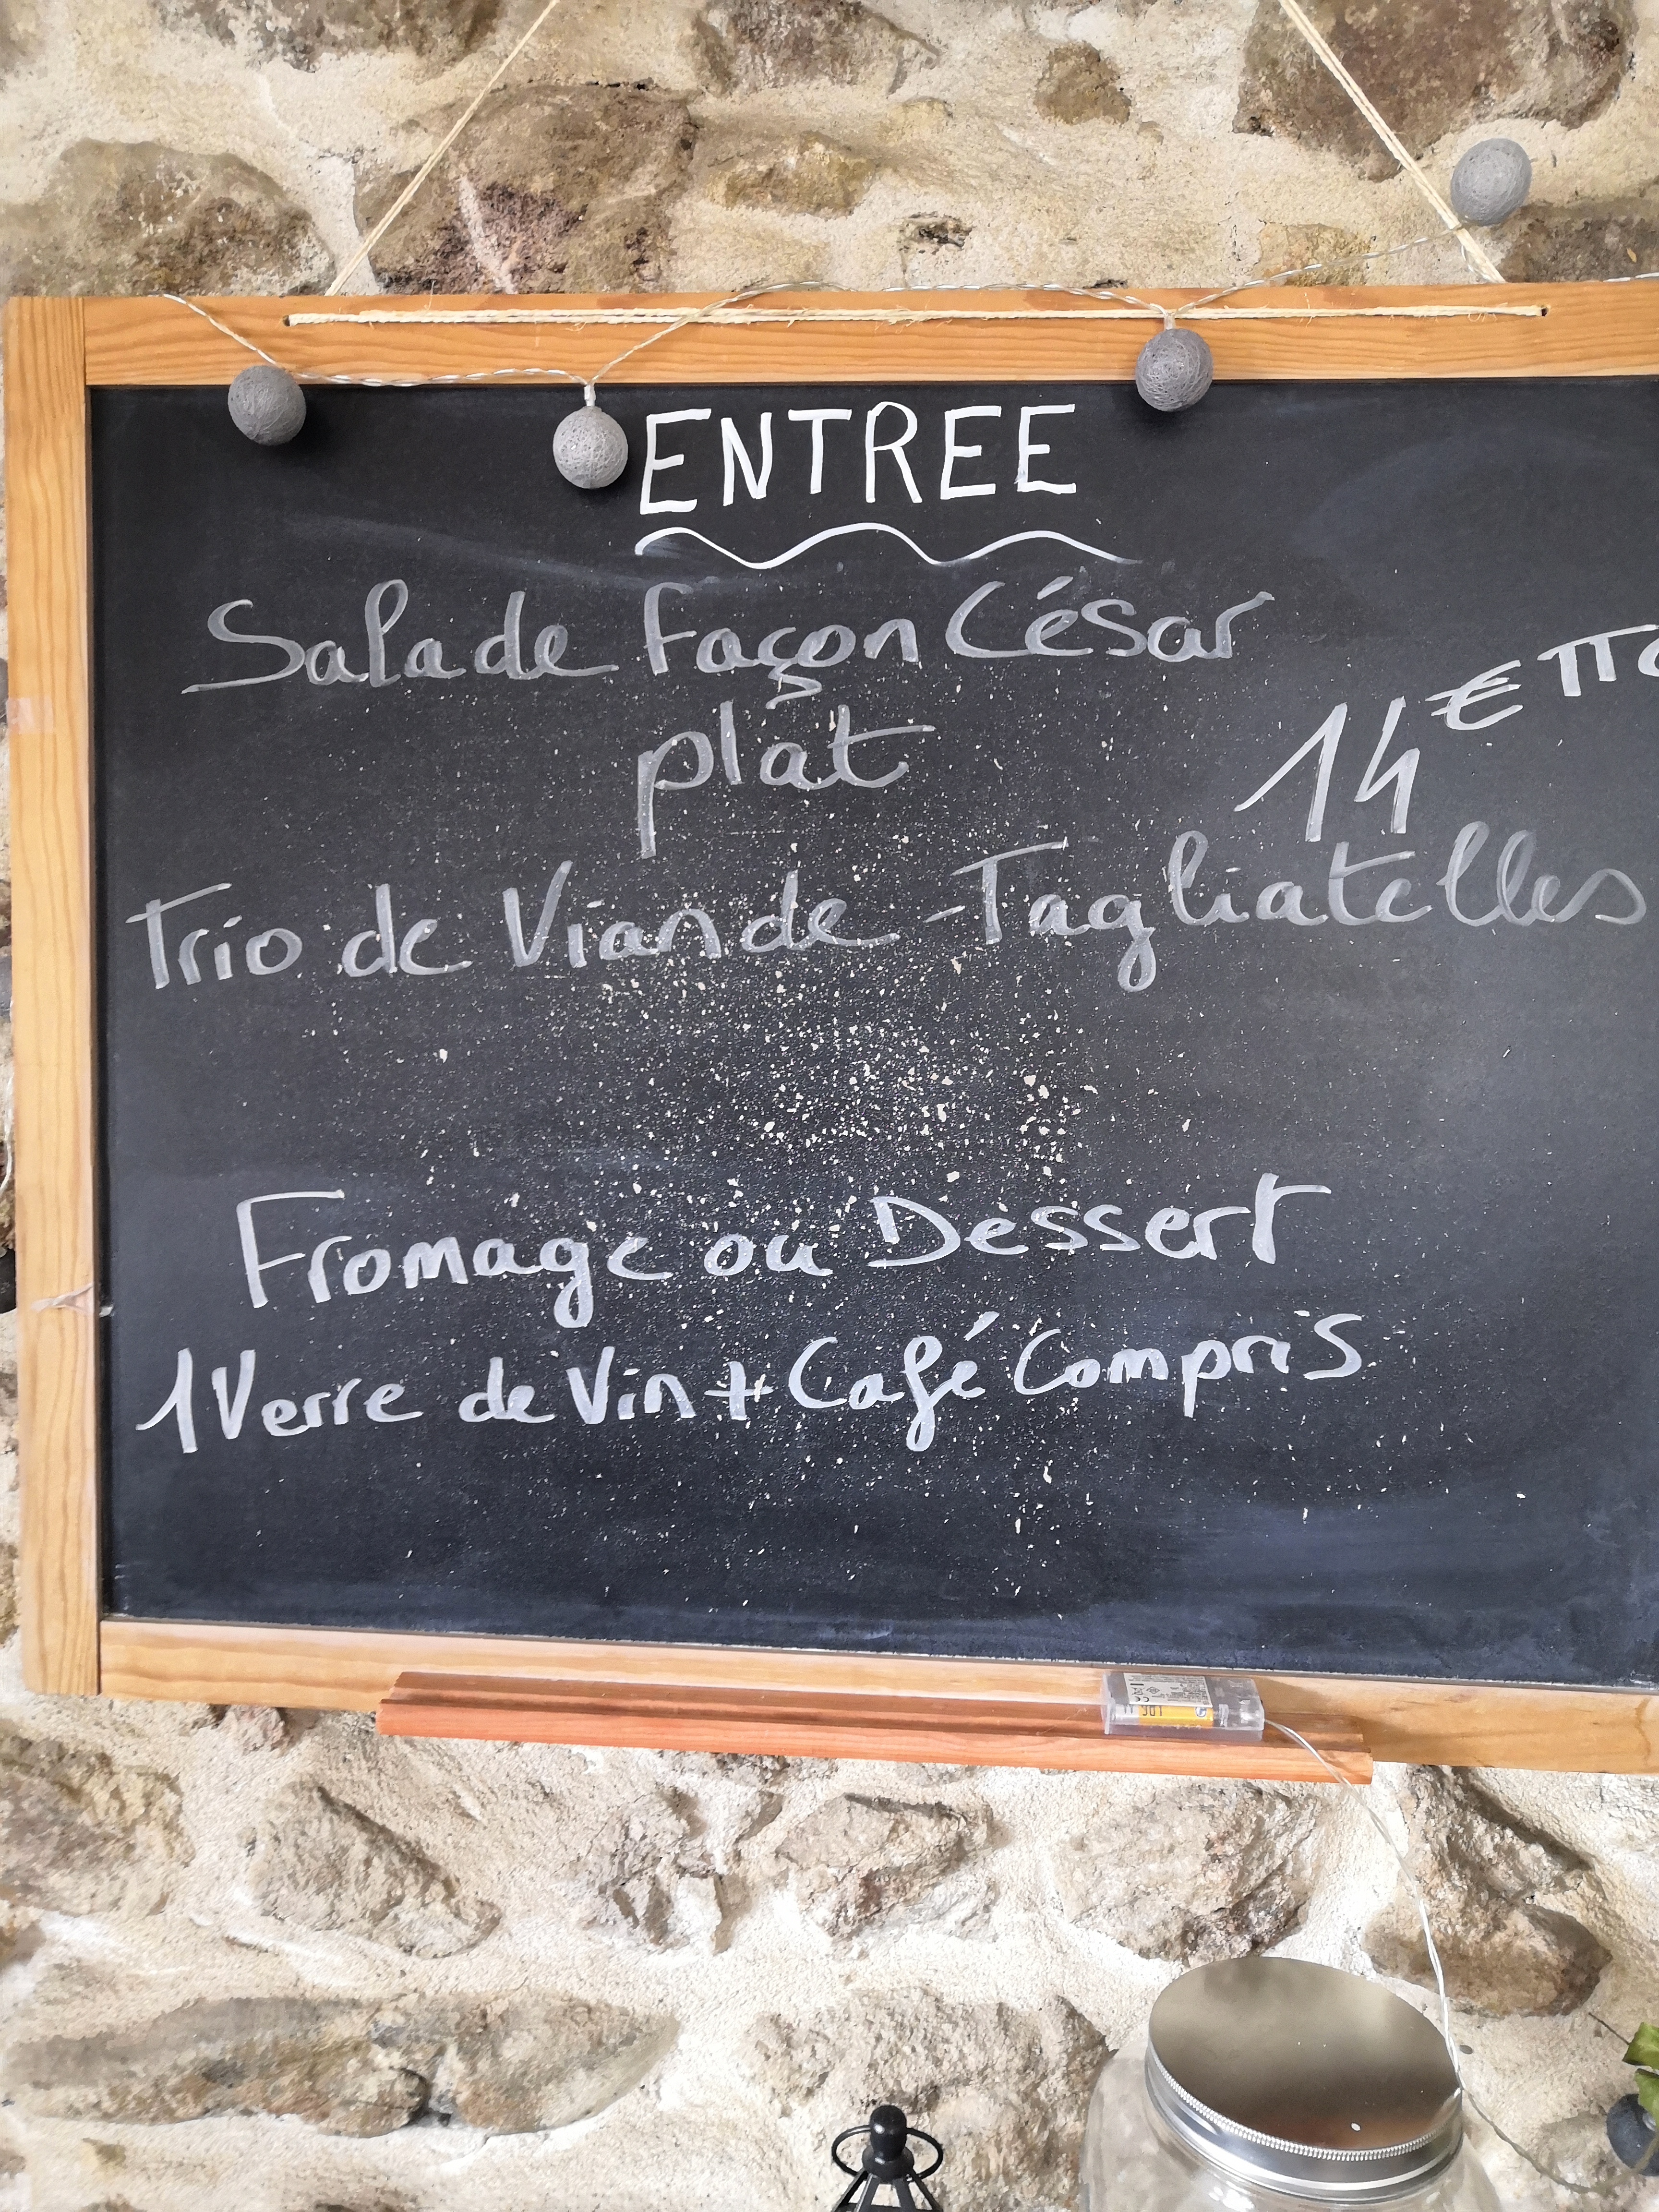 ENTREE
Salade façon César
plat
14 € TTC
Trio de Viande - Tagliatelles
Fromage ou Dessert
1 Verre de Vin + Café Compris